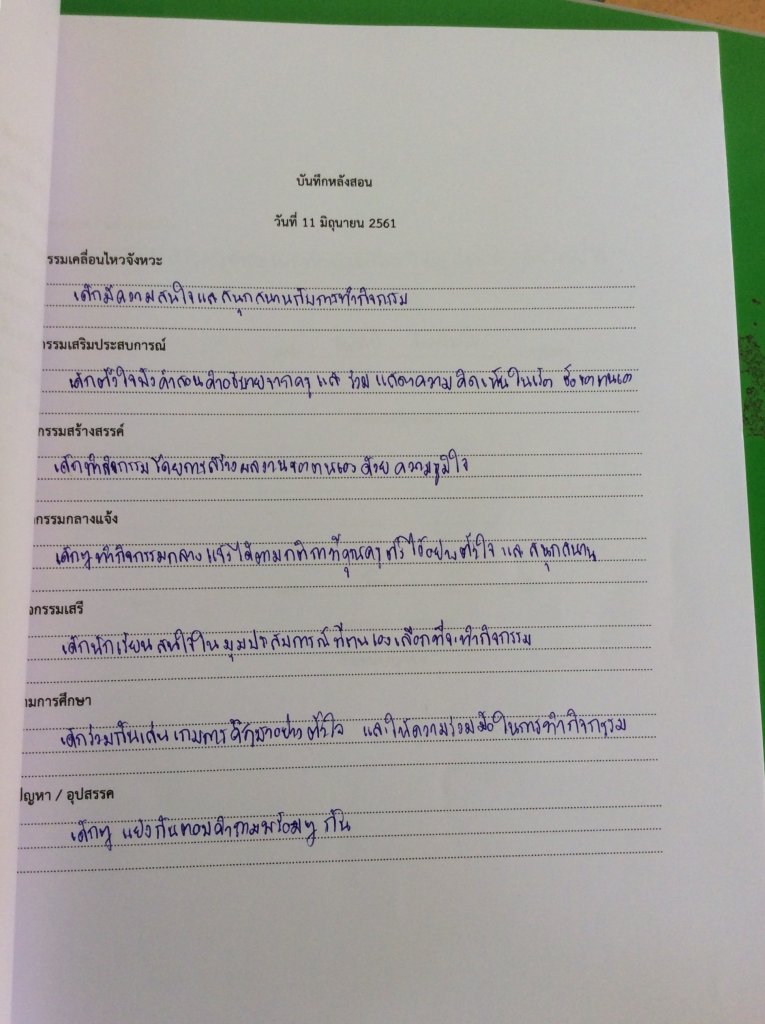 บันทึกหลังสอน
วันที่ 11 มิถุนายน 2561
รรมเคลื่อนไหวจังหวะ
เด็กมีความสนใจและสนุกสนานกับการทำกิจกรรม
กรรมเสริมประสบการณ์
เด็กตั้งใจฟังคำสอนคำอธิบายจากครู และ ร่วม แสดงความคิดเห็นใน ของตนเอง
กรรมสร้างสรรค์
เด็กทำกิจกรรม โดยการสร้างผลงานของตนเองด้วย ความภูมิใจ
กรรมกลางแจ้ง
เด็กๆ ทำกิจกรรมกลางแจ้งได้ตามกติกาที่คุณครู ไว้อย่างตั้งใจ และ สนุกสนาน
กรรมเสรี
เด็กนักเรียนสนใจในมุมประสบการณ์ที่ตนเองเลือกที่จะทำกิจกรรม
มการศึกษา
เด็กร่วมกันเล่นเกมการศึกษาอย่างตั้งใจ และให้ความร่วมมือในการทำกิจกรรม
ปัญหา / อุปสรรค
เด็กๆ แย่งกันตอบคำถามพร้อมๆ กัน